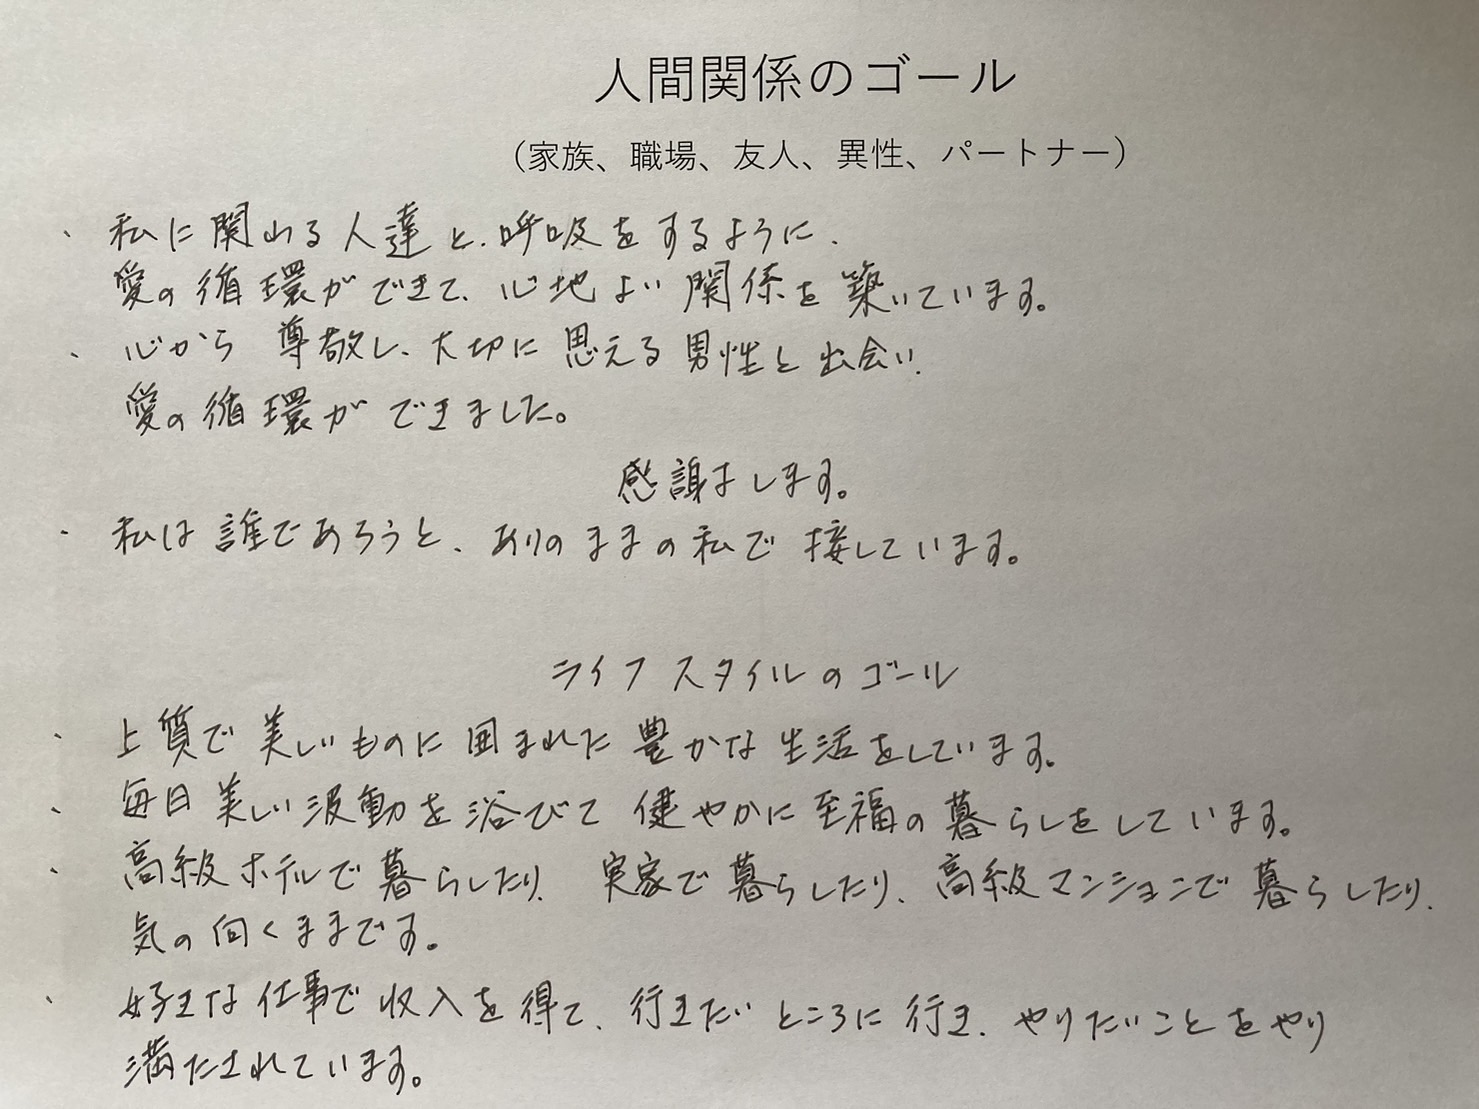 人間関係のゴール
(家族、職場、友人、異性、パートナー)
、私に関わる人達と、呼吸をするように、
愛の循環ができて、心地よい関係を築いています。
、心から尊敬し、大切に思える男性と出会い、
愛の循環ができました。
感謝します。
、私は誰であろうと、ありのままの私で接しています。
ライフスタイルのゴール
、上質で美しいものに囲まれた豊かな生活をしています。
、毎日美しい波動を浴びて健やかに至福の暮らしをしています。
、高級ホテルで暮らしたり、実家で暮らしたり、高級マンションで暮らしたり、
気の向くままです。
、好きな仕事で収入を得て、行きたいところに行き、やりたいことをやり
満たされています。